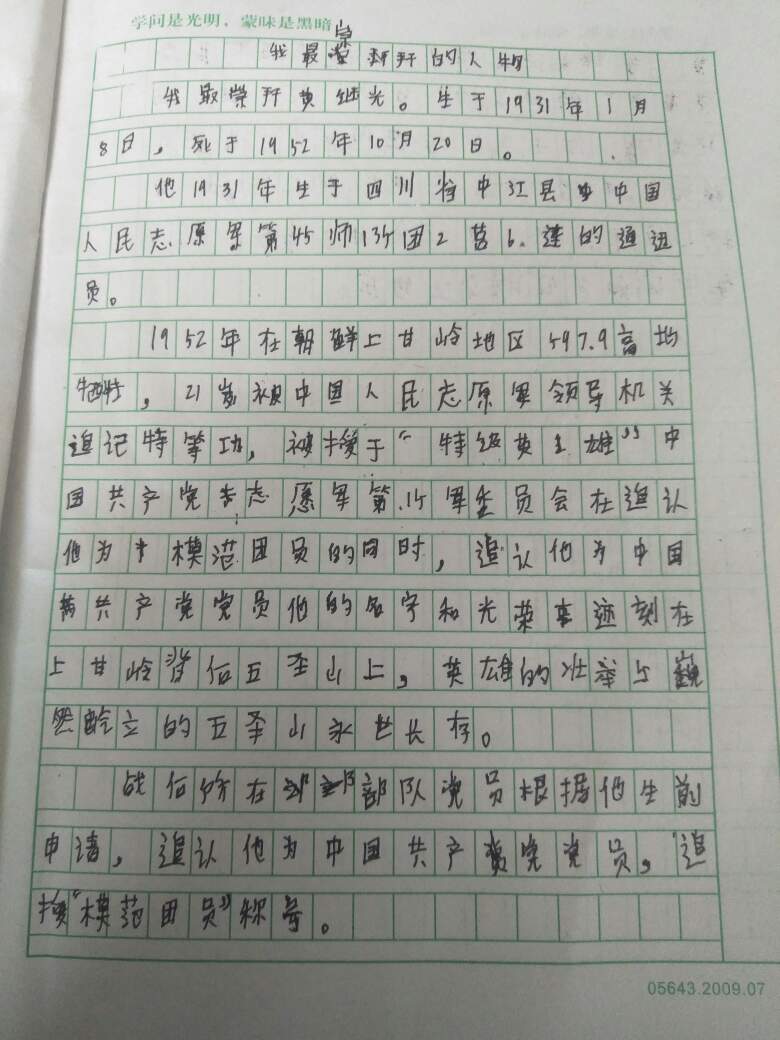 学问是光明，蒙昧是黑暗
我最崇拜的人物
我最崇拜黄继光。生于1931年1月
8日，死于1952年10月20日。
他1931年生于四川省中江县中国
人民志原军第45师135团2营6.连的通迅
员。
1952年在朝鲜上甘岭地区597.9高地
牺牲，21岁被中国人民志原军领导机关
追记特等功，被授于“特级英雄”中
国共产党志愿军第.15军委员会在追认
他为模范团员的同时，追认他为中国
共产党党员他的名字和光荣事迹刻在
上甘岭背后五圣山上，英雄的壮举与巍
然的五圣山永世长存。
战后所在部队党员根据他生前
申请，追认他为中国共产党党员，追
授“模范团员”称号。
05643.2009.07